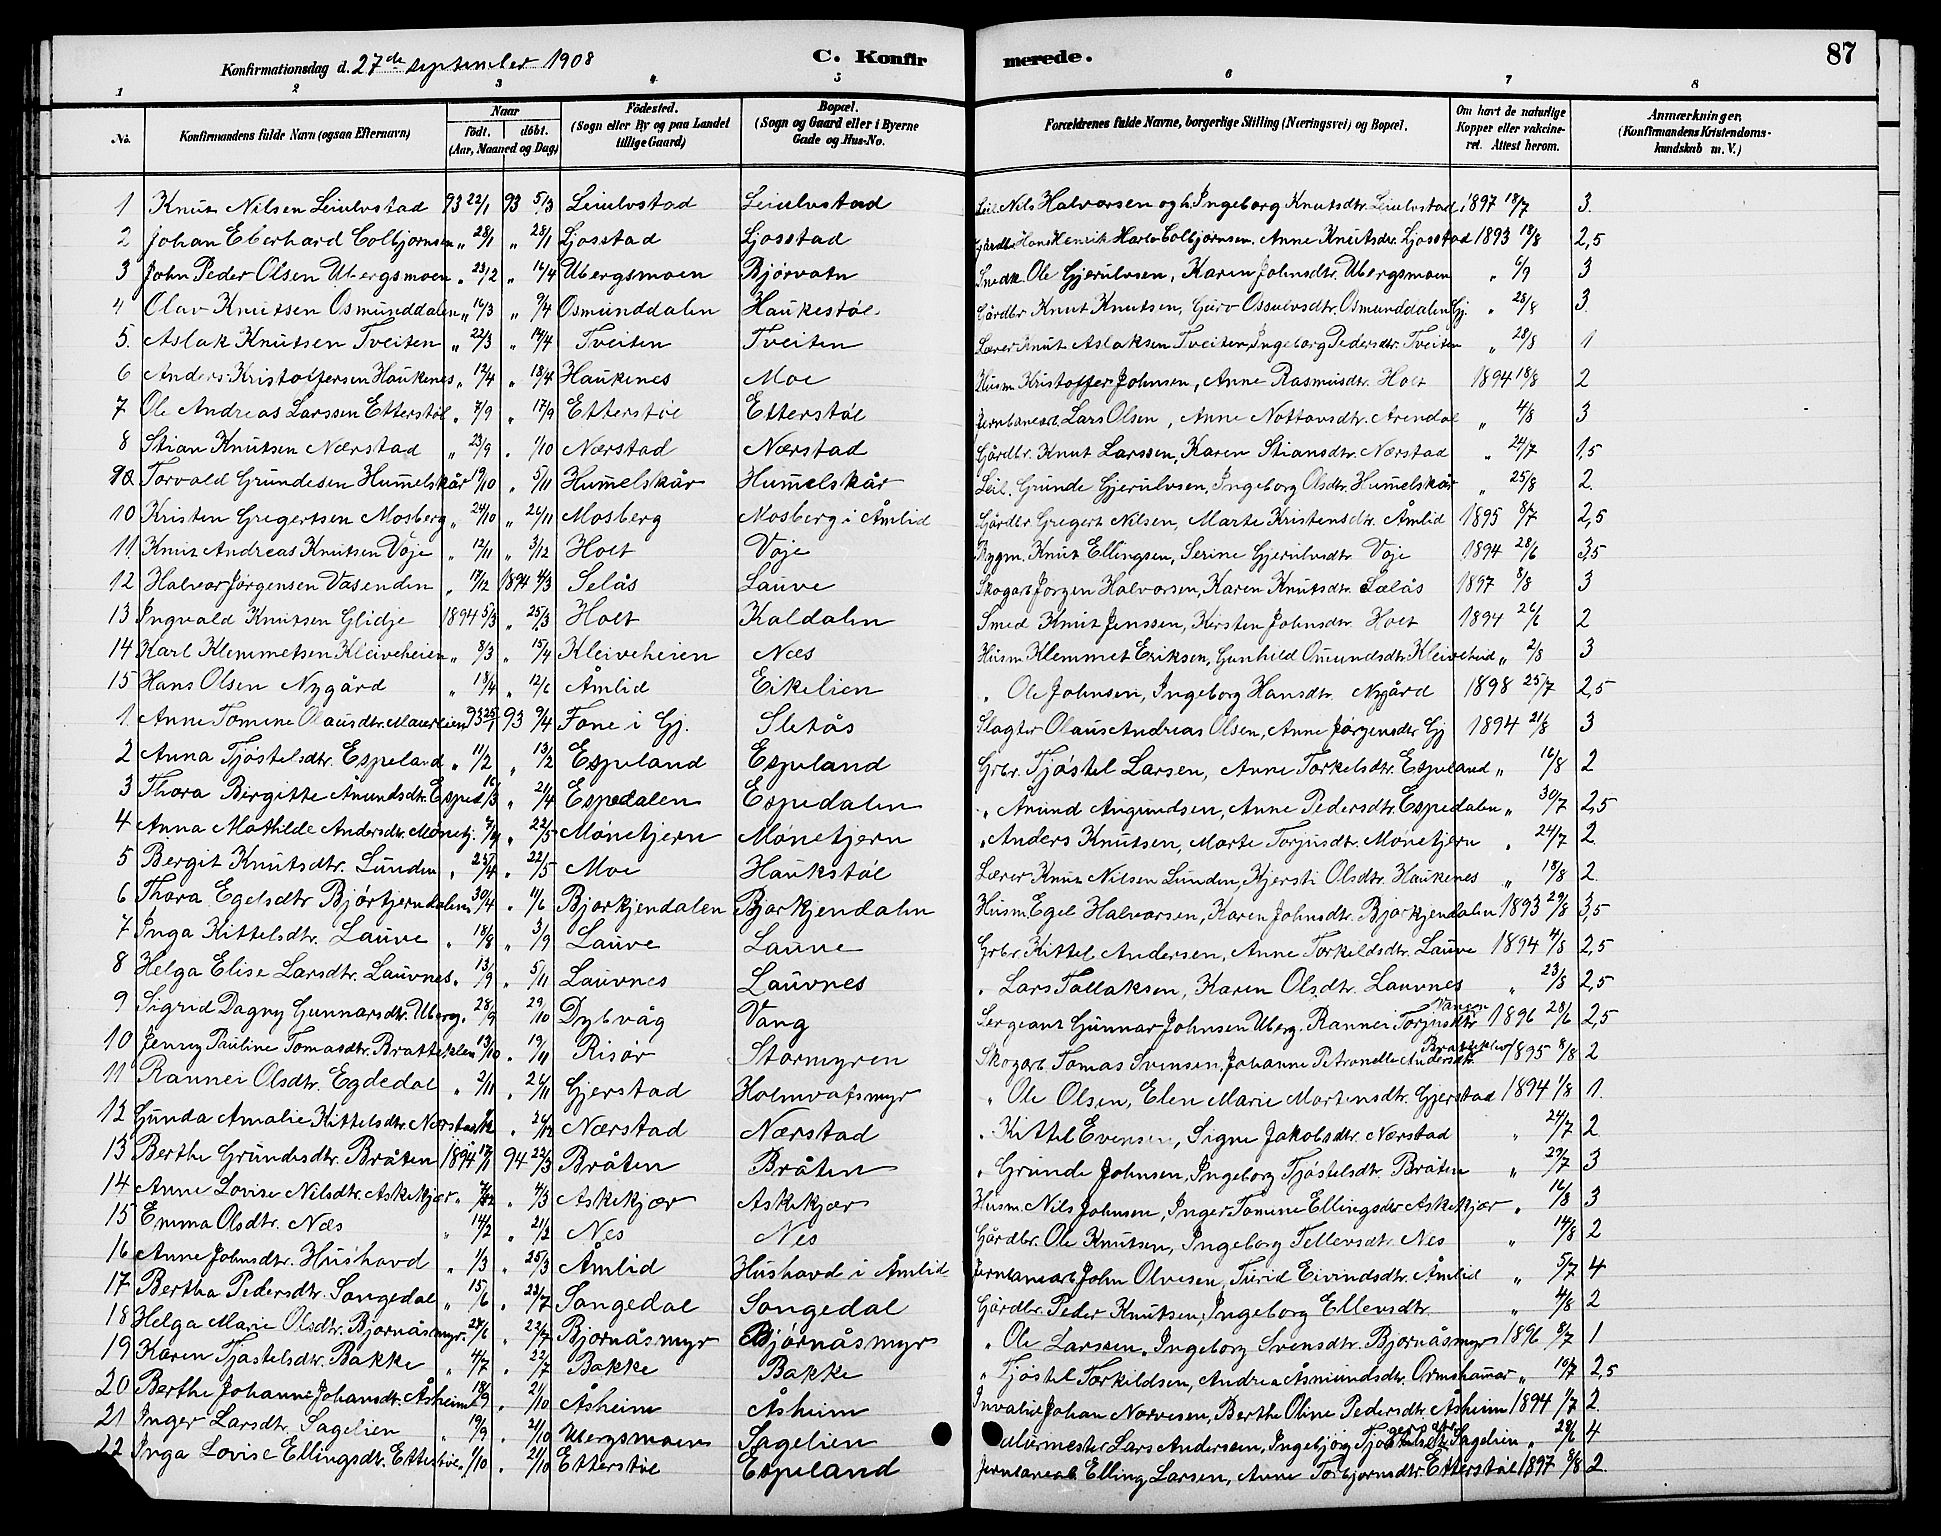 Konfirmationsdag d. 27de september 1908 C. Konfirmerede. 87
1 2 3 4 5 6 7 8
No. Konfirmandens fulde Navn (ogsaa Efternavn) Naar födt. döbt. (Aar, Maaned og Dag) Födested. (Sogn eller By og paa Landet tillige Gaard) Bopæl. (Sogn og Gaard eller i Byerne Gade og Hus-No. Forældrenes fulde Navne, borgerlige Stilling (Næringsvei) og Bopæl. Om havt de naturlige Kopper eller vakcineret. Attest herom. Anmærkninger, (Konfirmandens Kristendomskundskab m. V.)
1 Knut Nilsen Leiulvstad 93 22/1 93 5/3 Leiulvstad Leiulvstad Leil. Nils Halvorsen og h. Ingeborg Knutsdtr. Leiulvstad 1897 18/7 3.
2 Johan Eberhard Colbjørnsen " 28/1 " 28/1 Ljosstad Ljosstad Gårdbr. Hans Henrik Harbo Colbjørnsen. Anne Knutsdtr. Ljosstad 1893 18/8 2,5
3 John Peder Olsen Ubergsmoen " 23/12 " 16/4 Ubergsmoen Bjørvatn Smed Ole Gjerulvsen, Karen Johnsdtr. Ubergsmoen " 6/9 3
4 Olav Knutsen Osmunddalen " 16/3 " 9/4 Osmunddalen Haukestøl. Gårdbr Knut Knutsen, Guro Ossulvsdtr. Osmunddalen Gj. " 28/8 3.
5. Aslak Knutsen Tveiten " 22/3 " 14/4 Tveiten Tveiten Lærer Knut Aslaksen Tveiten, Ingeborg Pedersdtr. Tveiten " 28/8 1
6 Anders Kristoffersen Haukenes " 12/4 " 18/4 Haukenes Moe Husm. Kristoffer Johnsen, Anne Rasmusdtr. Holt 1894 18/8 2
7 Ole Andreas Larssen Etterstøl " 7/9 " 17/9 Etterstøl Etterstøl Jernbanearb. Lars Olsen, Anne Nottovsdtr. Arendal " 4/8 3
8 Stian Knutsen Nærstad " 23/9 " 1/10 Nærstad Nærstad Gårdbr. Knut Larssen, Karen Stiansdtr. Nærstad " 24/7 1,5
Torvald Grundesen Hum̄elskår 19/10 " 5/11 Hum̄elskår Hum̄elskår Leil. Grunde Gjerulvsen, Ingeborg Olsdtr. Hum̄elskår " 25/8 2.
10 Kristen Gregertsen Mosberg " 24/10 " 26/11 Mosberg Mosberg i Åmlid Gårdbr Gregert Nilsen, Marte Kristensdtr. Åmlid 1895 8/7 2,5
11 Knut Andreas Knutsen Voje " 12/11 " 3/12 Holt Voje Bygm. Knut Ellingsen, Serine Gjerulvsdtr. Voje 1894 28/6 3,5
12 Halvor Jørgensen Vasenden " 17/12 1894 4/3 Selås Lauve Skogarb Jørgen Halvorsen, Karen Knutsdtr. Selås 1897 8/8 3
13 Ingvald Knutsen Glidje 1894 5/3 " 25/3 Holt Kaldalen Smed Knut Jenssen, Kirsten Johnsdtr. Holt 1894 26/6 2
14 Karl Klemmetsen Kleiveheien " 8/3 " 15/4 Kleiveheien Næs Husm. Klemmet Eriksen, Gunhild Omundsdtr Kleiveheid " 2/8 3
15 Hans Olsen Nygård " 18/4 " 12/6 Åmlid Eikelien " Ole Johnsen, Ingeborg Hansdtr. Nygård 1898 25/7 2,5
1. Anne Tomine Olausdtr. Maurlien 93 25/1 93 9/4 Fone i Gj. Sletås Slagter Olaus Andreas Olsen, Anne Jørgensdtr Gj 1894 21/8 3
2 Anna Tjøstelsdtr. Espeland " 11/2 " 13/2 Espeland Espeland Grbr. Tjøstel Larsen, Anne Torkelsdtr. Espeland " 16/8 2
3 Thora Birgitte Ånundsdtr. Esped 16/3 " 21/4 Espedalen Espedalen " Ånund Augundsen, Anne Pedersdtr. Espedalen " 30/7 2,5
4 Anna Mathilde Andersdtr. Mønetj. 4/4 " 22/5 Mønetjern Mønetjern " Anders Knutsen, Marte Torjusdtr. Mønetjern " 24/7 2.
5 Bergit Knutsdtr. Lunden " 25/4 " 22/5 Moe Haukstøl Lærer Knut Nilsen Lunden, Kjersti Olsdtr. Haukenes " 18/8 2.
6 Thora Egelsdtr Bjørtjerndalen 30/4 " 11/6 Bjorkjendalen Bjorkjendalen Husm. Egel Halvorsen, Karen Johnsdtr. Bjorkjendalen 1893 29/8 3,5
7 Inga Kittelsdtr. Lauve " 18/8 " 3/9 Lauve Lauve Grbr. Kittel Andersen, Anne Torkeldsdtr. Lauve 1894 4/8 2,5
8 Helga Elise Larsdtr. Lauvnes. 13/9 " 5/11 Lauvnes Lauvnes " Lars Tallaksen, Karen Olsdtr. Lauvnes " 23/8 2,5
9 Sigrid Dagny Gunnarsdtr. Uberg. 28/9 29/10 Dybvåg Vang Sergeant Gunnar Johnsen Uberg. Rannei Torjusdtr 1896 28/6 2,5
10 Jenny Pauline Tomasdtr. Bratteklev 13/10 " 19/11 Risør Stormyren Skogarb. Tomas Svensen, Johanne Petronelle Andersdtr. Bratteklev 1895 8/8 2
11 Rannei Olsdtr. Egdedal " 2/11 " 26/11 Gjerstad Holmvatsmyr " Ole Olsen, Elen Marie Mortensdtr. Gjerstad 1894 1/8 1.
12 Gunda Amalie Kittelsdtr. Nerstad " 26/12 Nærstad Nærstad " Kittel Evensen, Signe Jakobsdtr. Nærstad " 24/7 2.
13 Berthe Grundesdtr. Bråten 1894 17/1 94 22/3 Bråten Bråten " Grunde Johnsen, Ingeborg Tjøstelsdtr. Bråten " 29/7 3
14 Anne Lovise Nilsdtr. Askekjær " 4/3 Askekjær Askkjær Husm. Nils Johnsen, Inger Tomine Ellingsdtr Askekjær " 16/8 3
15 Emma Olsdtr. Næs " 14/2 " 21/2 Nes Nes Gårdbr. Ole Knutsen, Ingeborg Tellevsdtr. Nes " 14/8 2
16 Anne Johnsdtr. Hushovd " 1/3 " 25/3 Åmlid Hushovd i Åmlid Jernbanearb John Olvesen, Turid Eivindsdtr. Åmlid " 5/7 4
17 Bertha Pedersdtr. Songedal " 15/6 " 22/7 Songedal Songedal Gårdbr. Peder Knutsen, Ingeborg Ellevsdtr. " 4/8 2
18 Helga Marie Olsdtr. Bjornåsmyr. 24/6 " 22/7 Bjornåsmyr Bjørnåsmyr " Ole Larssen, Ingeborg Svensdtr. Bjornåsmyr 1896 8/7 1
19 Karen Tjøstelsdtr. Bakke " 4/7 " 22/7 Bakke Bakke " Tjøstel Torkildsen, Andrea Åsmundsdtr. Ormshammar " 10/7 2,5
20 Berthe Johanne Johansdtr. Åsheim 18/9 " 21/10 Åsheim Åsheim Invalid Johan Norvesen, Berthe Oline Pedersdtr. Åsheim 1894 1/7 2.
21 Inger Larsdtr. Sagelien " 19/9 " 21/10 Ubergsmoen Sagelien Murmester Lars Andersen, Ingebjørg Sagelien " 28/6 4
22 Inga Lovise Ellingsdtr. Etterstøl " 1/10 " 21/10 Etterstøl Espeland Jernbanearb Elling Larsen, Anne Torbjørnsdtr. Etterstøl 1897 8/8 2.